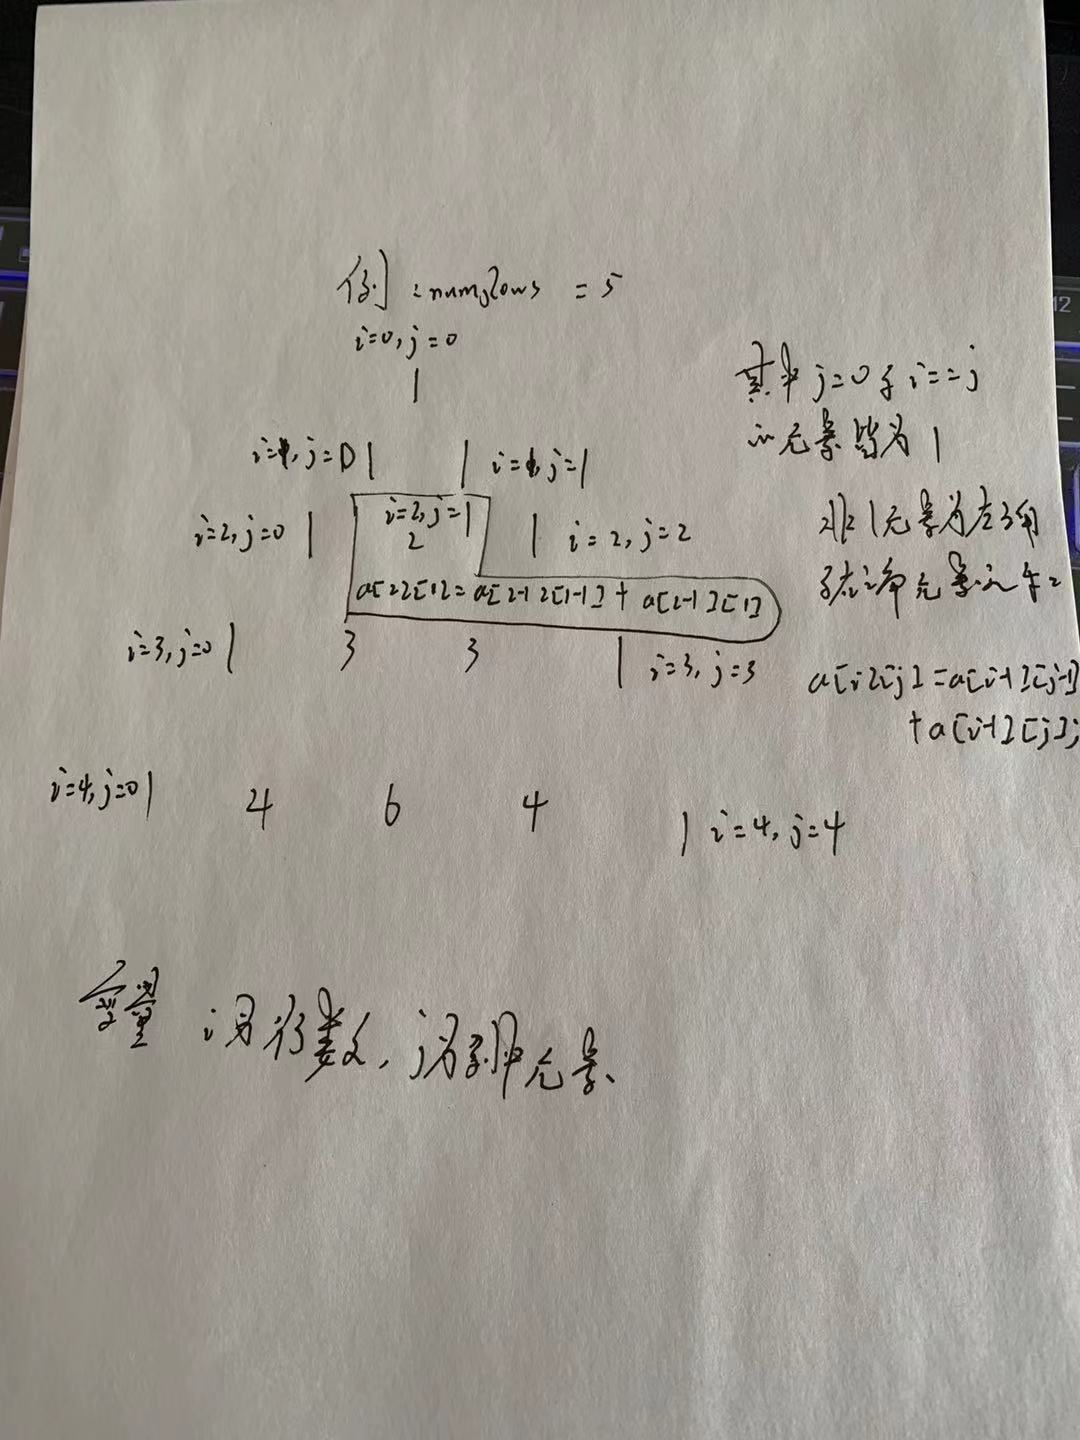 例:numRows = 5
i=0, j=0
1
i=1, j=0 1 1 i=1, j=1
i=2, j=0 1 i=2, j=1 2 1 i=2, j=2
a[2][1]=a[2-1][1-1] + a[2-1][1]
i=3, j=0 1 3 3 1 i=3, j=3
i=4, j=0 1 4 6 4 1 i=4, j=4
其中 j=0 与 i==j
的元素皆为 1
非1元素为左上角
元素之和
a[i][j]=a[i-1][j-1]
+a[i-1][j];
变量 i为行数, j为列中元素